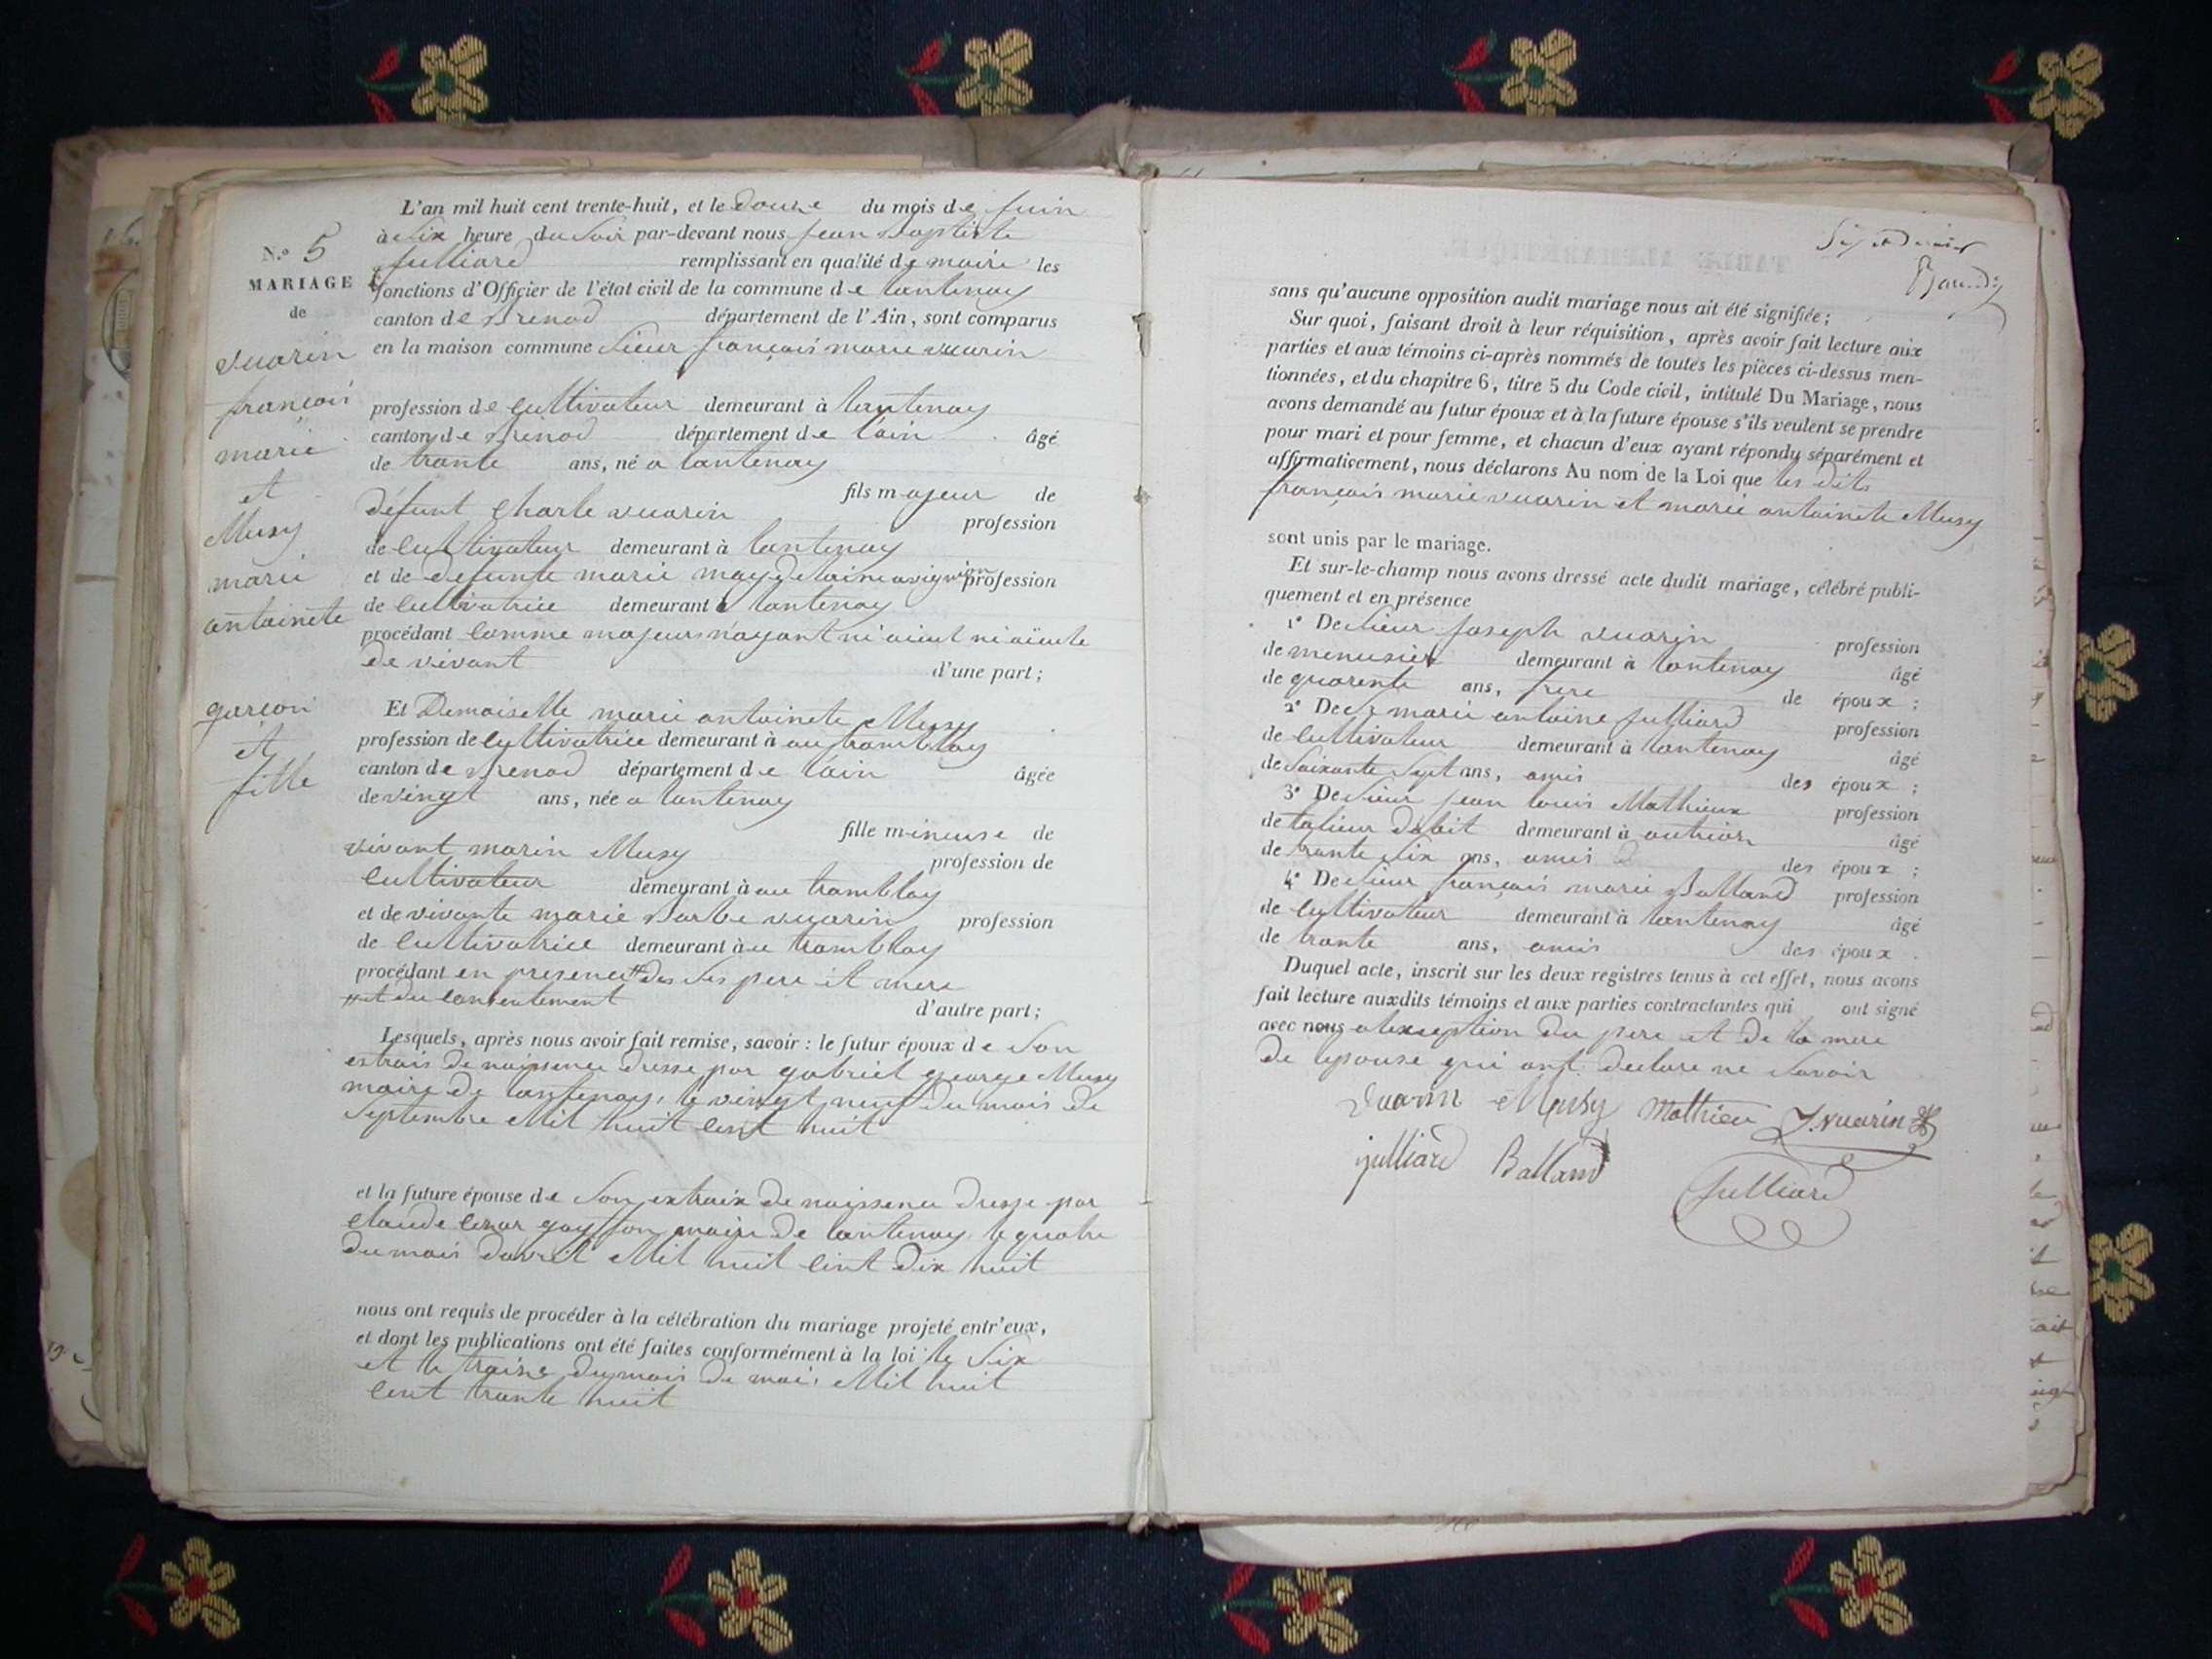 N.º 5
MARIAGE
de
vuarin
françois
marie
et
Musy
marie
antoinete
garcon
et
fille
L'an mil huit cent trente-huit, et le douze du mois de juin
à Six heure du Soir par-devant nous jean Baptiste
julliard remplissant en qualité de maire les
fonctions d'Officier de l'état civil de la commune de lantenay
canton de Brenod département de l'Ain, sont comparus
en la maison commune Sieur françois marie vuarin
profession de cultivateur demeurant à lantenay
canton de Brenod département de l'ain âgé
de trante ans, né a lantenay
fils majeur de
défunt Charle vuarin profession
de cultivateur demeurant à lantenay
et de defunte marie magdelaine profession
de cultivatrice demeurant à lantenay
procédant comme majeur n'ayant ni aieul ni aïeule
de vivant d'une part;
Et Demoiselle marie antoinete Musy
profession de cultivatrice demeurant à au tramblay
canton de Brenod département de l'ain âgée
de vingt ans, née a lantenay
fille mineuse de
vivant marin Musy profession de
cultivateur demeurant à au tramblay
et de vivante marie Barbe vuarin profession
de cultivatrice demeurant à au tramblay
procédant en presence des Ses pere et mere
et du consentement d'autre part;
Lesquels, après nous avoir fait remise, savoir: le futur époux de Son
extrais de naissence dresse par gabriel george Musy
maire de lantenay, le vingt neuf du mois de
Septembre Mil huit cent huit
et la future épouse de Son extraix de naissence dresse par
claude maire de lantenay le quatre
du mois davril Mil huit cent dix huit
nous ont requis de procéder à la célébration du mariage projeté entr'eux,
et dont les publications ont été faites conformément à la loi le Six
et le traise du mois de mai, Mil huit
cent trante huit
sans qu'aucune opposition audit mariage nous ait été signifiée;
Sur quoi, faisant droit à leur réquisition, après avoir fait lecture aux
parties et aux témoins ci-après nommés de toutes les pièces ci-dessus men-
tionnées, et du chapitre 6, titre 5 du Code civil, intitulé Du Mariage, nous
avons demandé au futur époux et à la future épouse s'ils veulent se prendre
pour mari et pour femme, et chacun d'eux ayant répondu séparément et
affirmativement, nous déclarons Au nom de la Loi que les dits
françois marie vuarin et marie antoinete Musy
sont unis par le mariage.
Et sur-le-champ nous avons dressé acte dudit mariage, célébré publi-
quement et en présence
1º De Sieur joseph vuarin profession
de menusier demeurant à lantenay âgé
de quarente ans, frere de époux;
2º De Sr marie antoine julliard profession
de cultivateur demeurant à lantenay âgé
de Soixante Sept ans, amis des époux;
3º De Sieur jean louis Mathieux profession
de talieur d'abit demeurant à outriar âgé
de trante Six ans, amis des époux;
4º De Sieur françois marie Balland profession
de cultivateur demeurant à lantenay âgé
de trante ans, amis des époux.
Duquel acte, inscrit sur les deux registres tenus à cet effet, nous avons
fait lecture auxdits témoins et aux parties contractantes qui ont signé
avec nous a lexception du pere et de la mere
de lepouse qui ont declare ne Savoir
Vuarin Musy Mathieu J. vuarin
julliard Balland
Julliard